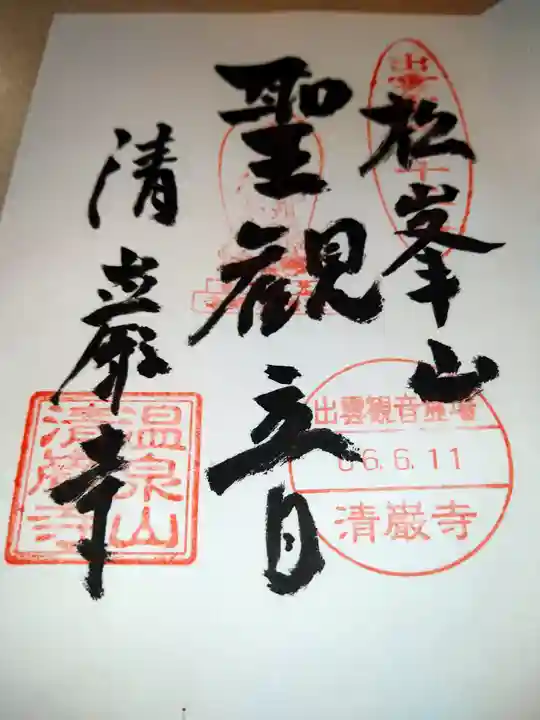 松峯山
聖観立日
清巖寺
出雲観音霊場
06.6.11
清巌寺
温泉山
清巌寺